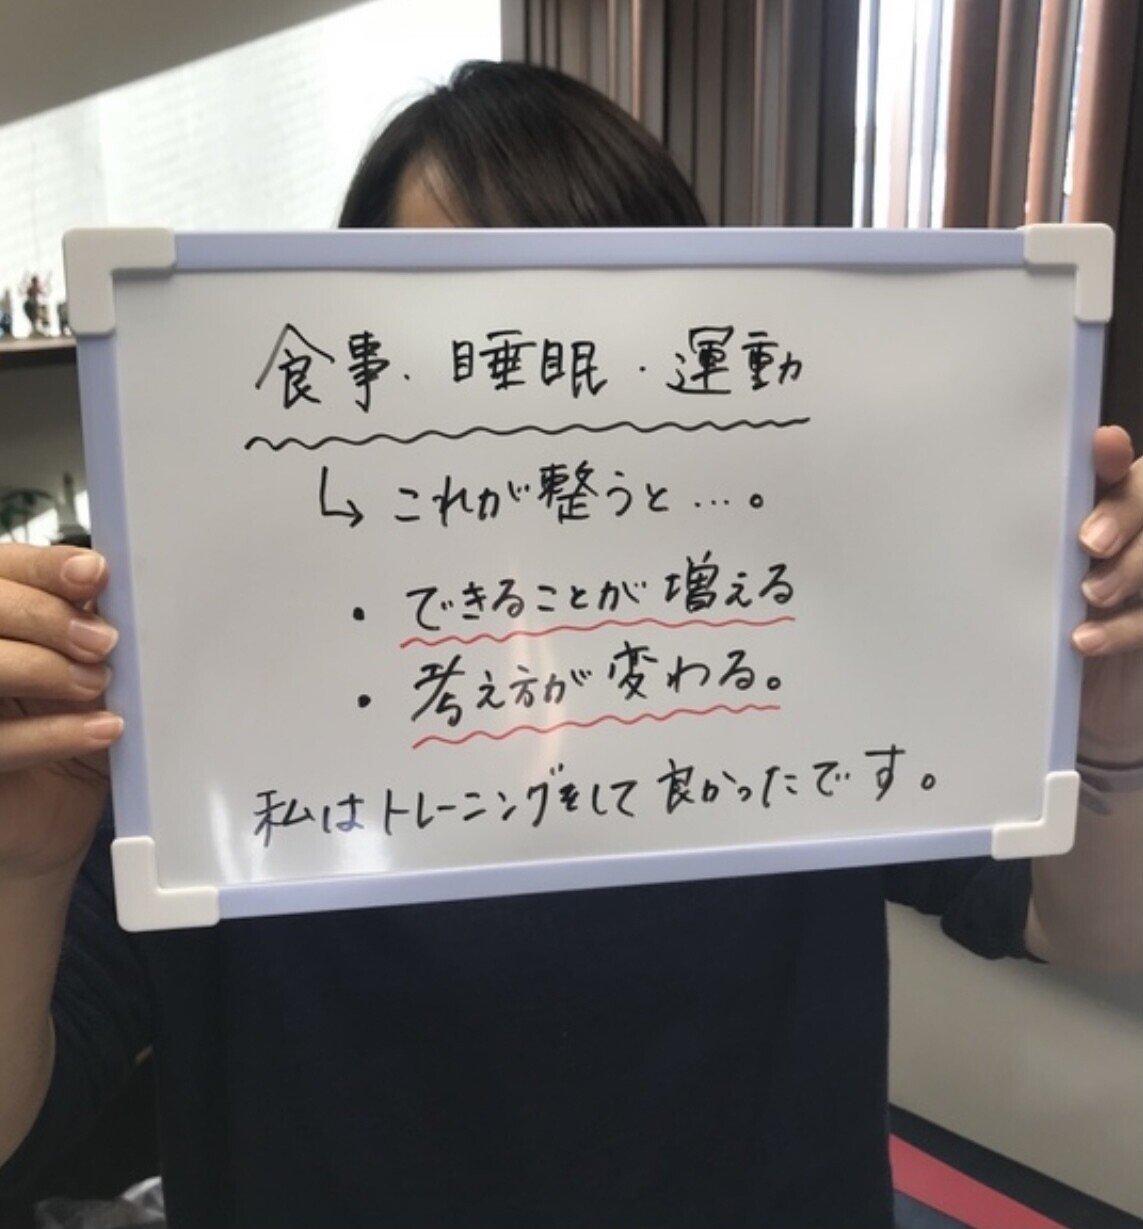 食事・睡眠・運動
↳ これが整うと…。
・できることが増える
・考え方が変わる。
私はトレーニングをして良かったです。